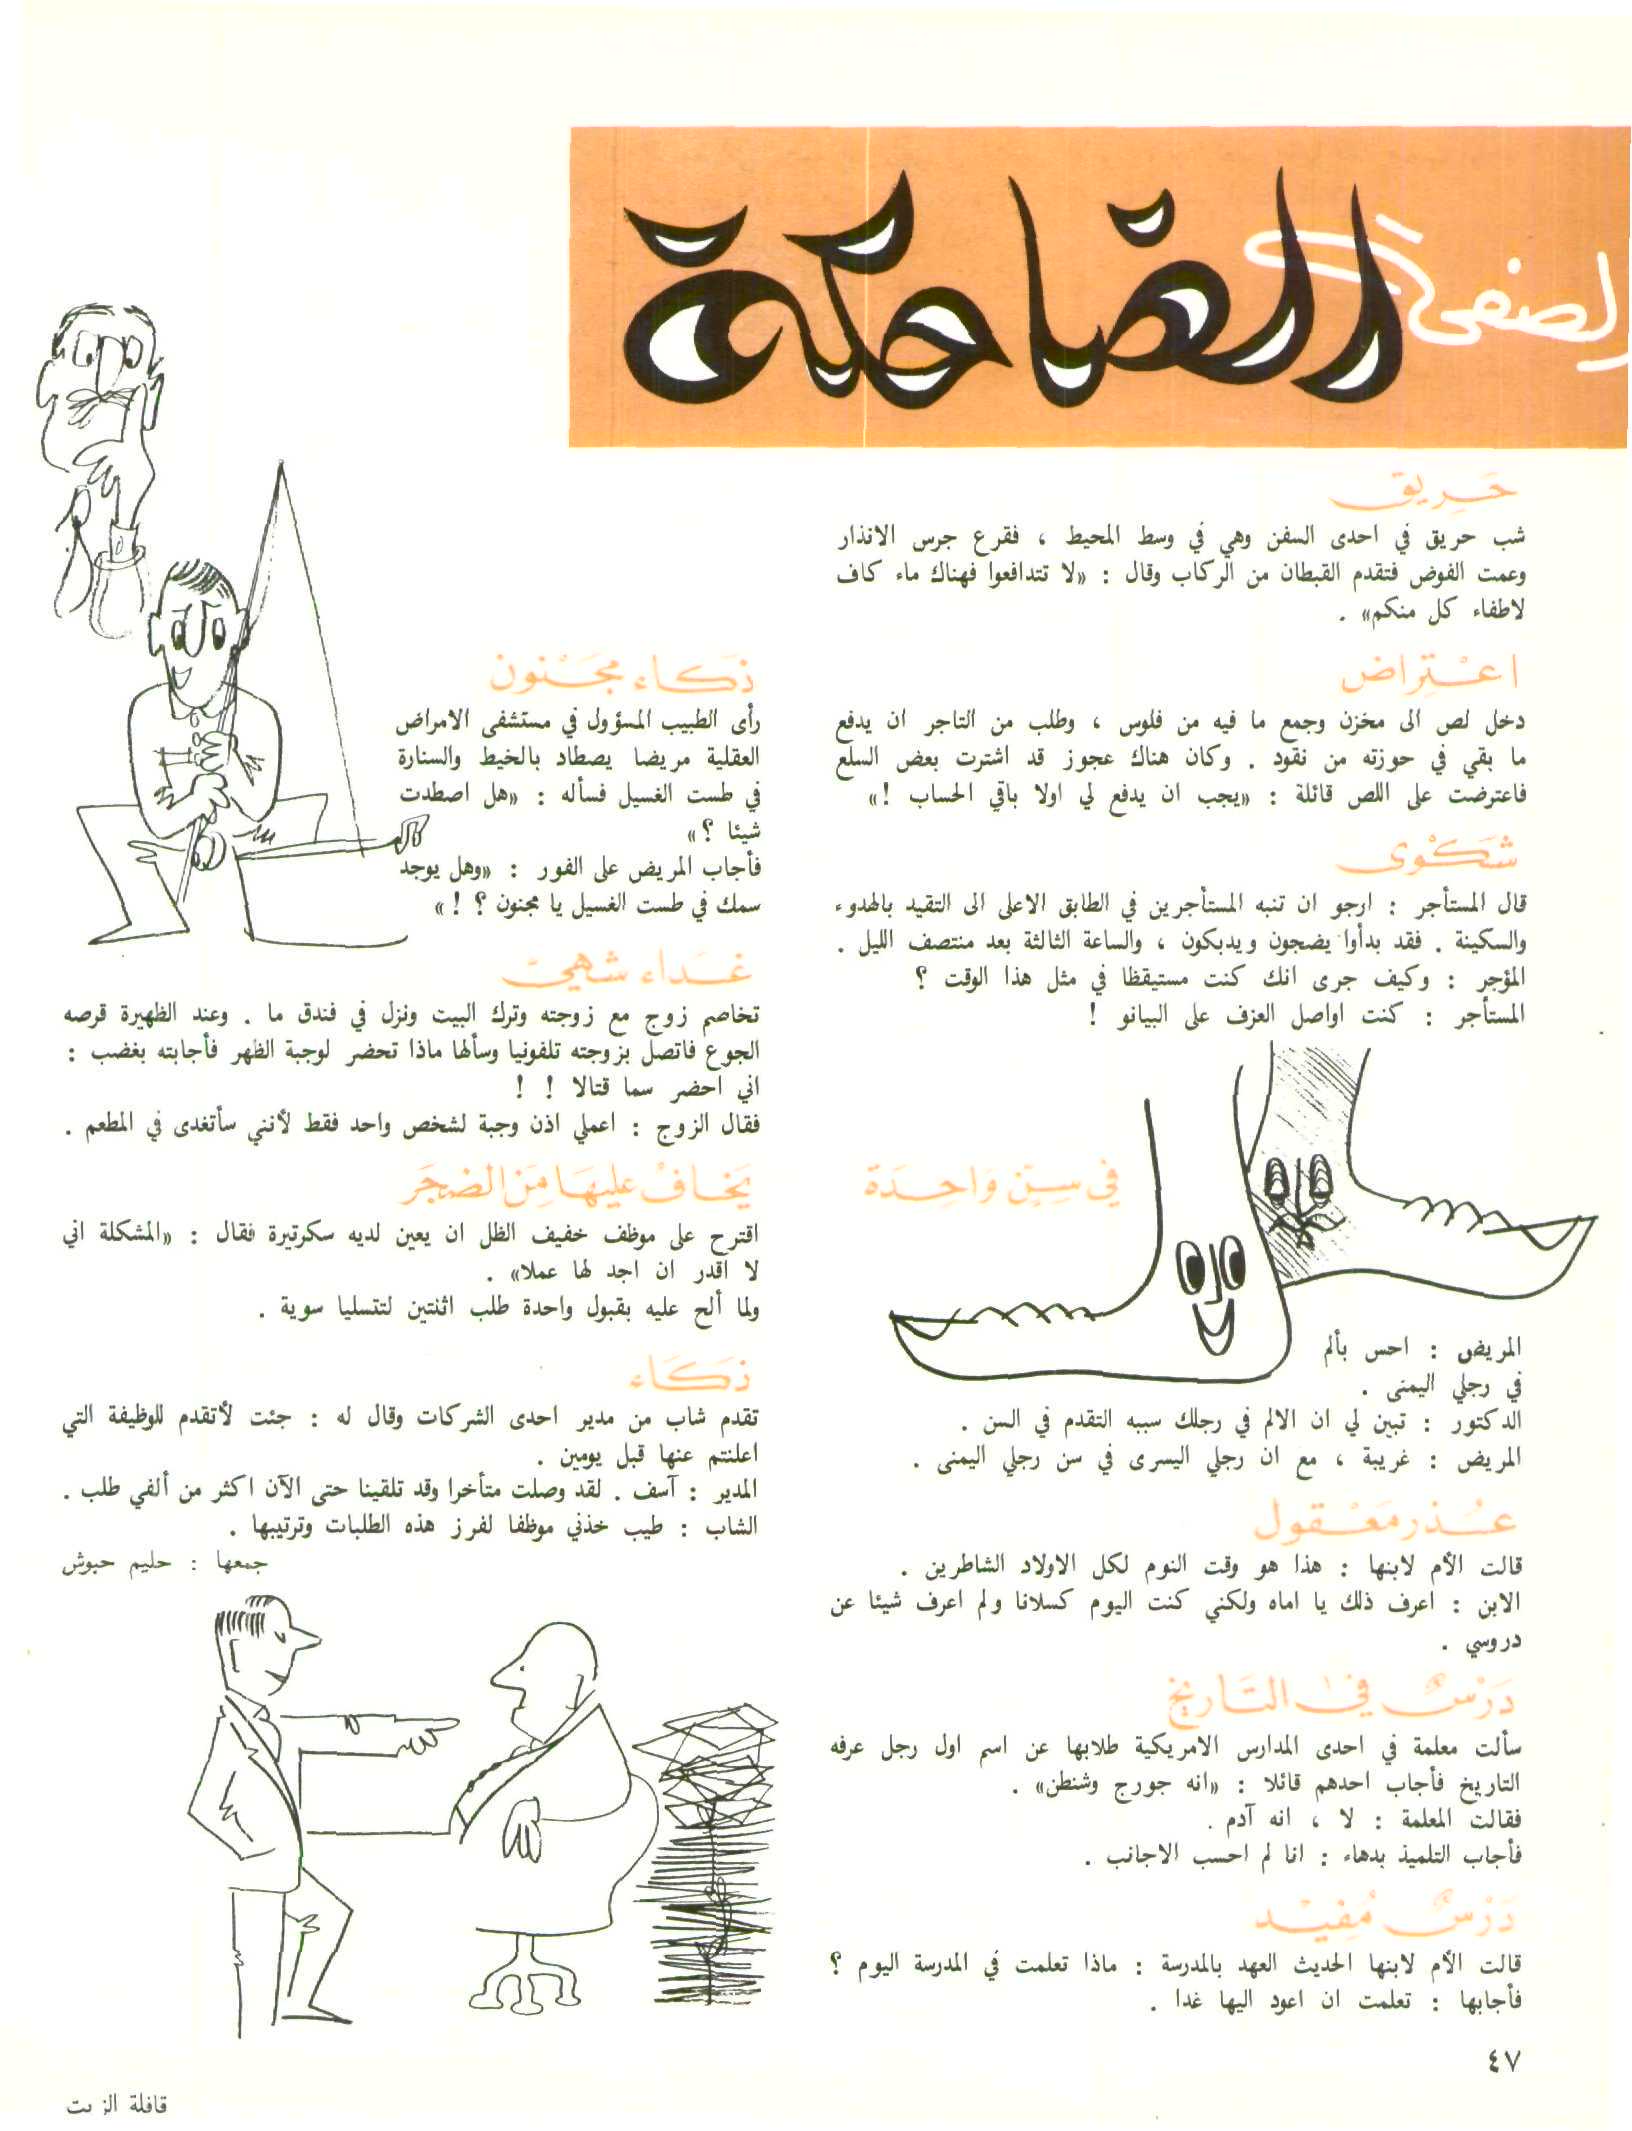 الصفحة الضاحكة
حَريق
شب حريق في احدى السفن وهي في وسط المحيط ، فقرع جرس الانذار
وعمت الفوض فتقدم القبطان من الركاب وقال : «لا تتدافعوا فهناك ماء كاف
لاطفاء كل منكم» .
اعْتِراض
دخل لص الى مخزن وجمع ما فيه من فلوس ، وطلب من التاجر ان يدفع
ما بقي في حوزته من نقود . وكان هناك عجوز قد اشترت بعض السلع
فاعترضت على اللص قائلة : «يجب ان يدفع لي اولا باقي الحساب !»
شَكْوى
قال المستأجر : ارجو ان تنبه المستأجرين في الطابق الاعلى الى التقيد بالهدوء
والسكينة . فقد بدأوا يضجون ويدبكون ، والساعة الثالثة بعد منتصف الليل .
المؤجر : وكيف جرى انك كنت مستيقظا في مثل هذا الوقت ؟
المستأجر : كنت اواصل العزف على البيانو !
في سِنٍّ وَاحِدَة
المريض : احس بألم
في رجلي اليمنى .
الدكتور : تبين لي ان الالم في رجلك سببه التقدم في السن .
المريض : غريبة ، مع ان رجلي اليسرى في سن رجلي اليمنى .
عُذر مَعْقول
قالت الأم لابنها : هذا هو وقت النوم لكل الاولاد الشاطرين .
الابن : اعرف ذلك يا اماه ولكني كنت اليوم كسلانا ولم اعرف شيئا عن
دروسي .
دَرْسٌ في التَاريخ
سألت معلمة في احدى المدارس الامريكية طلابها عن اسم اول رجل عرفه
التاريخ فأجاب احدهم قائلا : «انه جورج وشنطن» .
فقالت المعلمة : لا ، انه آدم .
فأجاب التلميذ بدهاء : انا لم احسب الاجانب .
دَرْسٌ مُفيْد
قالت الأم لابنها الحديث العهد بالمدرسة : ماذا تعلمت في المدرسة اليوم ؟
فأجابها : تعلمت ان اعود اليها غدا .
ذَكاء مَجْنون
رأى الطبيب المسؤول في مستشفى الامراض
العقلية مريضا يصطاد بالخيط والسنارة
في طست الغسيل فسأله : «هل اصطدت
شيئا ؟»
فأجاب المريض على الفور : «وهل يوجد
سمك في طست الغسيل يا مجنون ؟ !»
غَداء شهيّ
تخاصم زوج مع زوجته وترك البيت ونزل في فندق ما . وعند الظهيرة قرصه
الجوع فاتصل بزوجته تلفونيا وسألها ماذا تحضر لوجبة الظهر فأجابته بغضب :
اني احضر سما قتالا ! !
فقال الزوج : اعملي اذن وجبة لشخص واحد فقط لأنني سأتغدى في المطعم .
يَخاف عليهَا مِنَ الضجَر
اقترح على موظف خفيف الظل ان يعين لديه سكرتيرة فقال : «المشكلة اني
لا اقدر ان اجد لها عملا» .
ولما ألح عليه بقبول واحدة طلب اثنتين لتتسليا سوية .
ذَكَاء
تقدم شاب من مدير احدى الشركات وقال له : جئت لأتقدم للوظيفة التي
اعلنتم عنها قبل يومين .
المدير : آسف . لقد وصلت متأخرا وقد تلقينا حتى الآن اكثر من ألفي طلب .
الشاب : طيب خذني موظفا لفرز هذه الطلبات وترتيبها .
جمعها : حليم حبوش
٤٧
قافلة الزيت